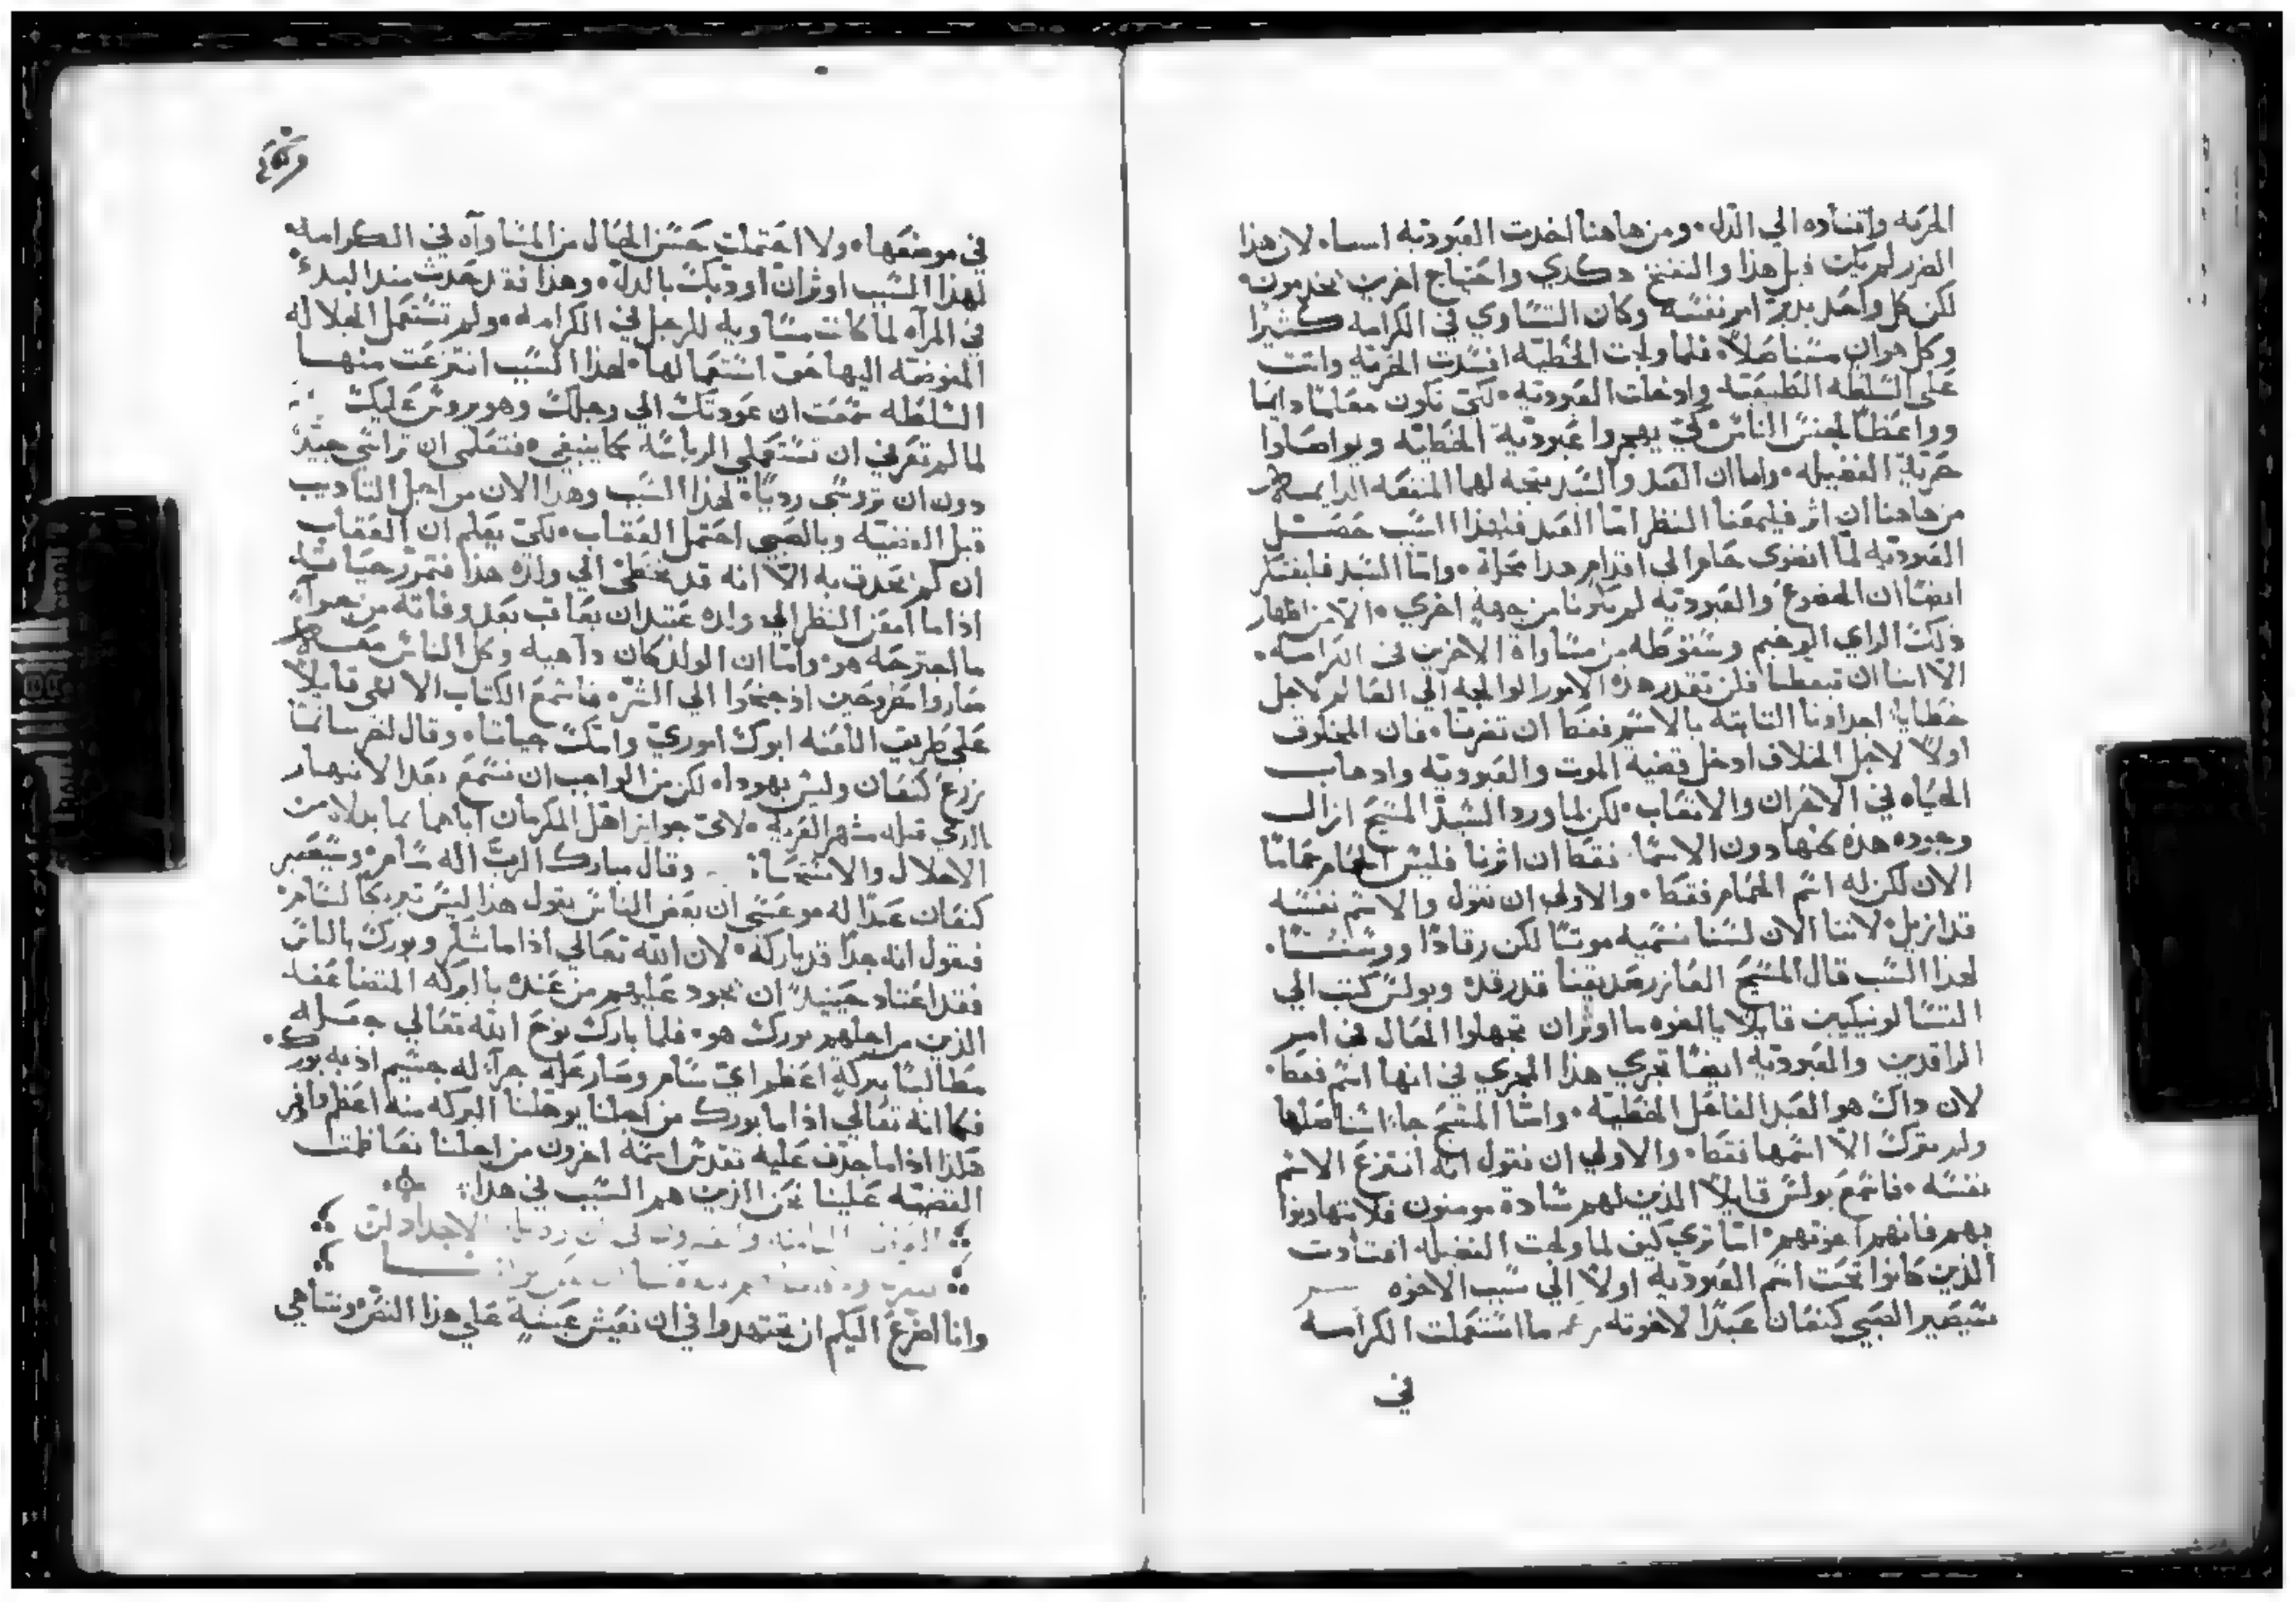 الحريه واقتاده الي الذل ومن هاهنا اخدت العبوديه اسما لان هذا
الضرر لم يكن قبل هذا والتفنخ دكدي واحتياج اخرين يخدمون
لكن كل واحد يدبر امر نفسه وكان التساوي في الكرامه كثيرا
وكل هوان مستاصلا فلما ولجت الخطيه افسدت الحريه واتت
على السلطه الطبيعيه وادخلت العبوديه لكي تكون معلما دايما
وواعظا لجنس الناس كي يهجروا عبودية الخطيه ويواصلوا
حرية الفضيله واما ان العبد والسيد يتجه لهما المنفعه الدايمه
من هاهنا ان اثر فليمعنا النظر اما العبد فلهذا السبب حصل
العبوديه لما انغوى حام الى اقدام هدا مجراه واما السيد فليفتكر
ايضا ان الخضوع والعبوديه لم يلزما من جهة اخري الا من اظهار
ذلك الراي الوخيم وسقوطه من مساواة الاخرين في الكرامه
الا اننا ان تيقظنا فلن تقدر هذه الامور الوالجه الي العالم لاجل
خطايا اجدادنا الثابته بالاسم فقط ان تضرنا فان المخلوق
اولا لاجل الخلاف ادخل قضية الموت والعبوديه واذهاب
الحياه في الاحزان والاتعاب لكن لما ورد السيد المسيح ازال
وجوده هذه كلها دون الاسما فقط ان اثرنا فليس الحمام حماما
الان لكن له اسم الحمام فقط والاولى ان نقول والاسم نفسه
قد ازيل لاننا الان لسنا نسميه موتا لكن رقادا ووسنا
لهذا السبب قال المسيح العازر صديقنا قد رقد وبولس كتب الي
التسالونيكيين قايلا يا اخوه ما اوثر ان تجهلوا الحال في امر
الراقدين والعبوديه ايضا تجري هذا المجري في انها اسم فقط
لان ذاك هو العبد الفاعل الخطيه واما المسيح جاء استاصلها
ولم يترك الا اسمها فقط والاولي ان نقول انه انتزع الاسم
نفسه فاسمع بولس قايلا الذين لهم سادة مومنون فلا يتهاونوا
بهم فانهم اخوتهم اما تري كيف لما ولجت الفضيله اقتادت
الذين كانوا تحت اسم العبوديه اولا الي سبب الاخوه
سيصير الصبي كنعان عبدا لاخوته ما استعملت الكرامه
في
في موضعها ولا احتملت حسن الحال من المساواه في الكرامه
لهذا السبب اوثر ان اودبك بالدله وهذا فقد حدث منذ البدء
في المرآه لما كانت مساويه للرجل في الكرامه ولم تستعمل الجلاله
المفوضه اليها حق استعمالها لهذا السبب انتزعت منها
السلطه سمعت ان عودتك الي رجلك وهو يروس عليك
لما لم تعرفي ان تستعملي الرياسة كما ينبغي فتعلمي ان تراسي جيدا
دون ان تروسي رديا لهذا السبب وهذا الان من اجل التاديب
قبل القضيه وبالصبي احتمل العقاب لكي يعلم ان العقاب
ان لم يحدث به الا انه قد يتخطى الي ولده هذا فتمرر حياته
اذا ما امعن النظر الي ولده عتيد ان يعاقب بعد وفاته من نحو
ما اجترحه هو واما ان الولد كان داهيه وكل الناس
صاروا مطروحين اذ جنحوا الي الشره فاسمع الكتاب الالهي قايلا
على طريق اللعنه ابوك اموري وامك حياثا وقال لهم سانتا
زرع كنعان وليس يهودا لكن من الواجب ان نسمع بعد الانهار
الذي قبله مشهر العريه لاي جوايز اهل المكرمان اباهما بما بدلاه من
الاجلال والاحتشام وقال مبارك الرب اله سام وسيصير
كنعان عبدا له هو عسي ان بعض الناس يقول هذا ليس تبريكا لسام
فنقول انه جدا قد باركه لان الله تعالي اذا ما شكر وبورك بالناس
فقد اعتاد حينيذ ان يجود عليهم من عنده بالبركه المتضاعفه
الذين من اجلهم بورك هو فلما بارك نوح الله تعالي جعله
مطالبا ببركة اعظم اي سام وصار علة جزآء له جسيم اذ به بورك
فكما انه تعالي اذا ما بورك من اجلنا يوهلنا البركه منه اعظم وافر
هكذا اذا ما جدف عليه تقدس اسمه اخرون من اجلنا تعاظمت
القضيه علينا نحن الذين هم السبب في هذا
وانا اضرع اليكم ان تجتهدوا في ان نعيش عيشة علي هذا النص ونتناهي